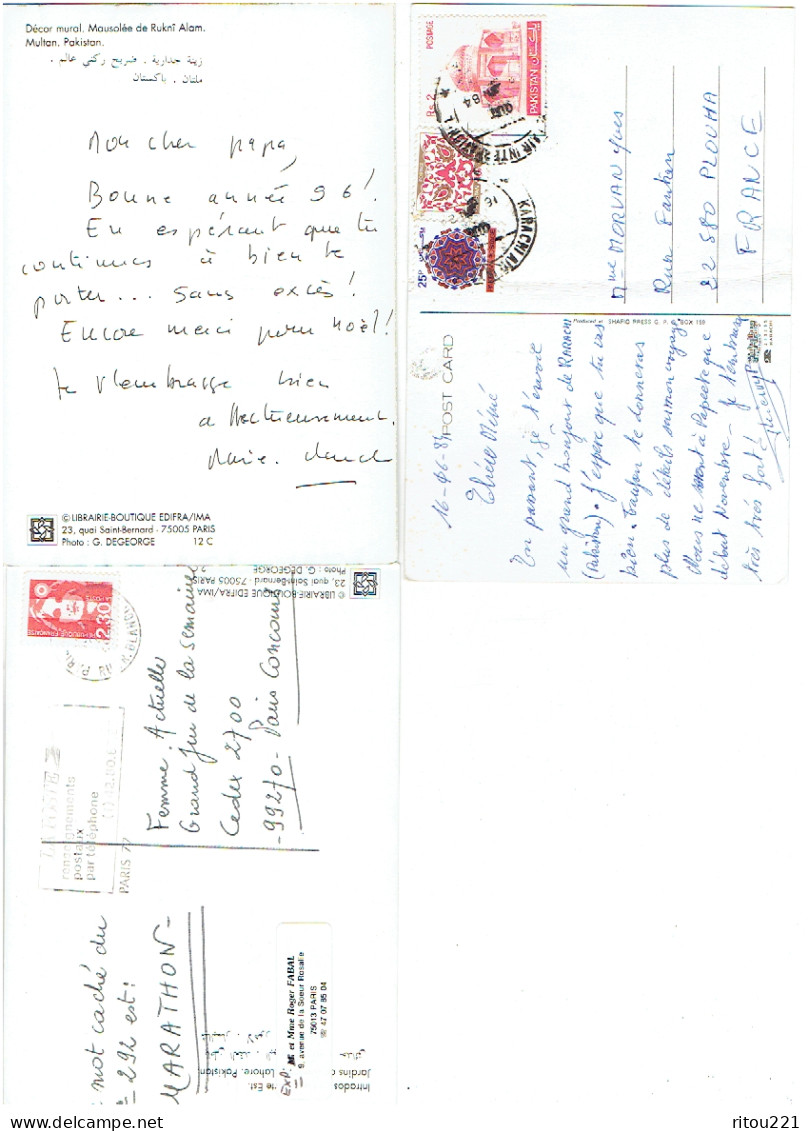 Décor mural. Mausolée de Ruknî Alam.
Multan, Pakistan.
زينة جدارية . ضريح ركني عالم .
ملتان . باكستان
Mon cher papa,
Bonne année 96!
En espérant que tu
continues à bien te
porter... sans excès!
Encore merci pour Noël!
Je t'embrasse bien
affectueusement.
Marie.
© LIBRAIRIE-BOUTIQUE EDIFRA/IMA
23, quai Saint-Bernard - 75005 PARIS
Photo : G. DEGEORGE 12 C
POSTAGE
Rs. 2
PAKISTAN
25P
KARACHI AIR
Mme MORVAN Yves
Rue
22580 PLOUHA
FRANCE
Produced at SHAFIQ PRESS G. P. O. BOX 159
POST CARD
16-06-84
Chère Mémé
En passant, je t'envoie
un grand bonjour de KARACHI
(Pakistan). J'espère que tu vas
bien. Tonton te donneras
plus de détails sur mon voyage
Nous ne à Papeete que
début Novembre. Je t'embrasse
très très fort!
© LIBRAIRIE-BOUTIQUE EDIFRA/IMA
23, quai Saint-Bernard - 75005 PARIS
Photo : G. DEGEORGE
2,30
REPUBLIQUE FRANÇAISE
LA POSTE
renseignements
postaux
par téléphone
PARIS
Femme Actuelle
Grand jeu de la semaine
Cedex 2700
-99270- Paris Concours
mot caché du
292 est:
MARATHON-
EXP: M et Mme Roger FABAL
9, avenue de la Soeur Rosalie
75013 PARIS
47 07 95 04
Intrados
te Est.
Jardins
Lahore. Pakistan.
ritou221